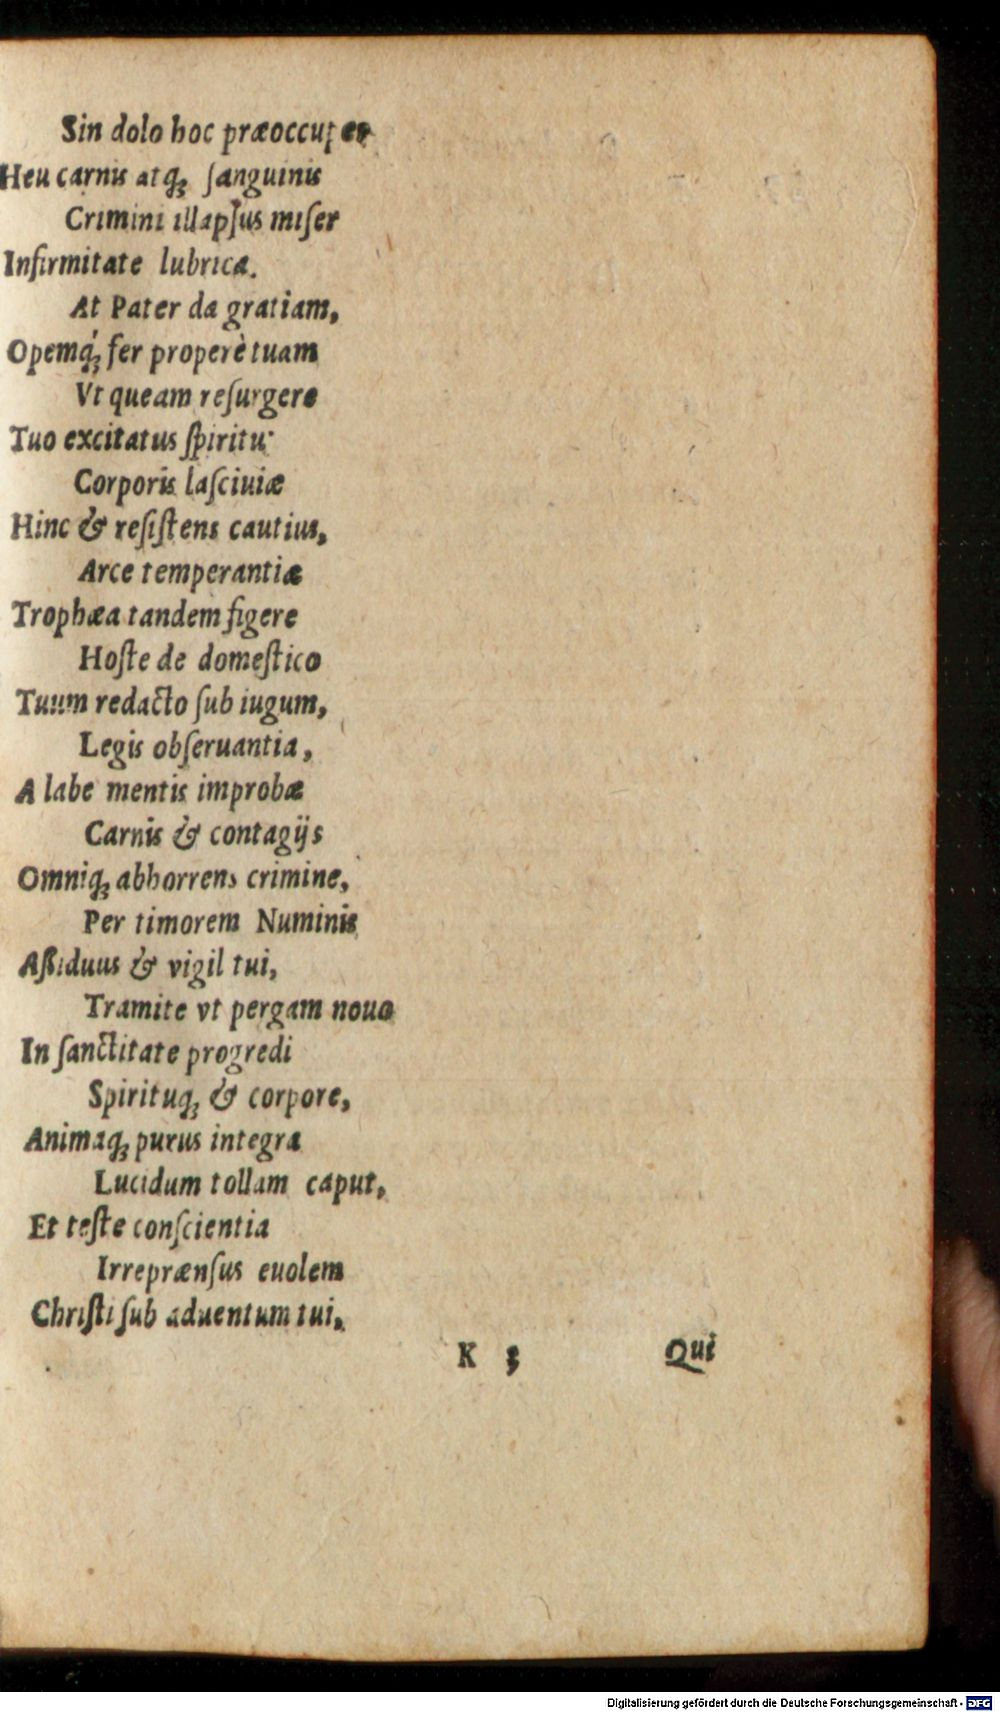 Sin dolo hoc præoccuper
Heu carnis atq́ꝫ ſanguinis
Crimini illapſus miſer
Infirmitate lubrica.
At Pater da gratiam,
Opemq́ꝫ fer properè tuam
Vt queam reſurgere
Tuo excitatus ſpiritu:
Corporis laſciuiæ
Hinc & reſiſtens cautius,
Arce temperantiæ
Trophæa tandem figere
Hoſte de domeſtico
Tuum redacto ſub iugum,
Legis obſeruantia,
A labe mentis improbæ
Carnis & contagijs
Omniqꝫ abhorrens crimine,
Per timorem Numinis
Aſsiduus & vigil tui,
Tramite vt pergam nouo
In ſanctitate progredi
Spirituqꝫ & corpore,
Animaqꝫ purus integra
Lucidum tollam caput,
Et teſte conſcientia
Irreprænſus euolem
Chriſti ſub aduentum tui,
K 3 Qui
Digitalisierung gefördert durch die Deutsche Forschungsgemeinschaft - DFG